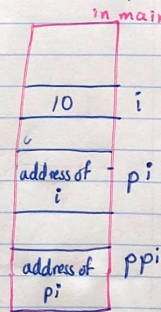 in main
10 i
address of
i
pi
address of
pi
ppi